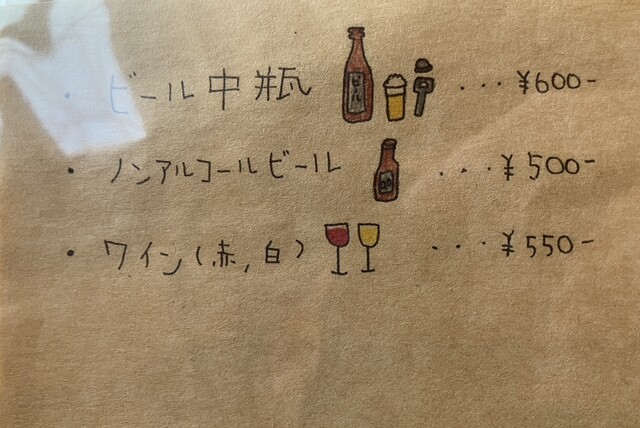 ・ビール中瓶 ビール ・・・¥600-
・ノンアルコールビール ・・・¥500-
・ワイン(赤,白) ・・・¥550-